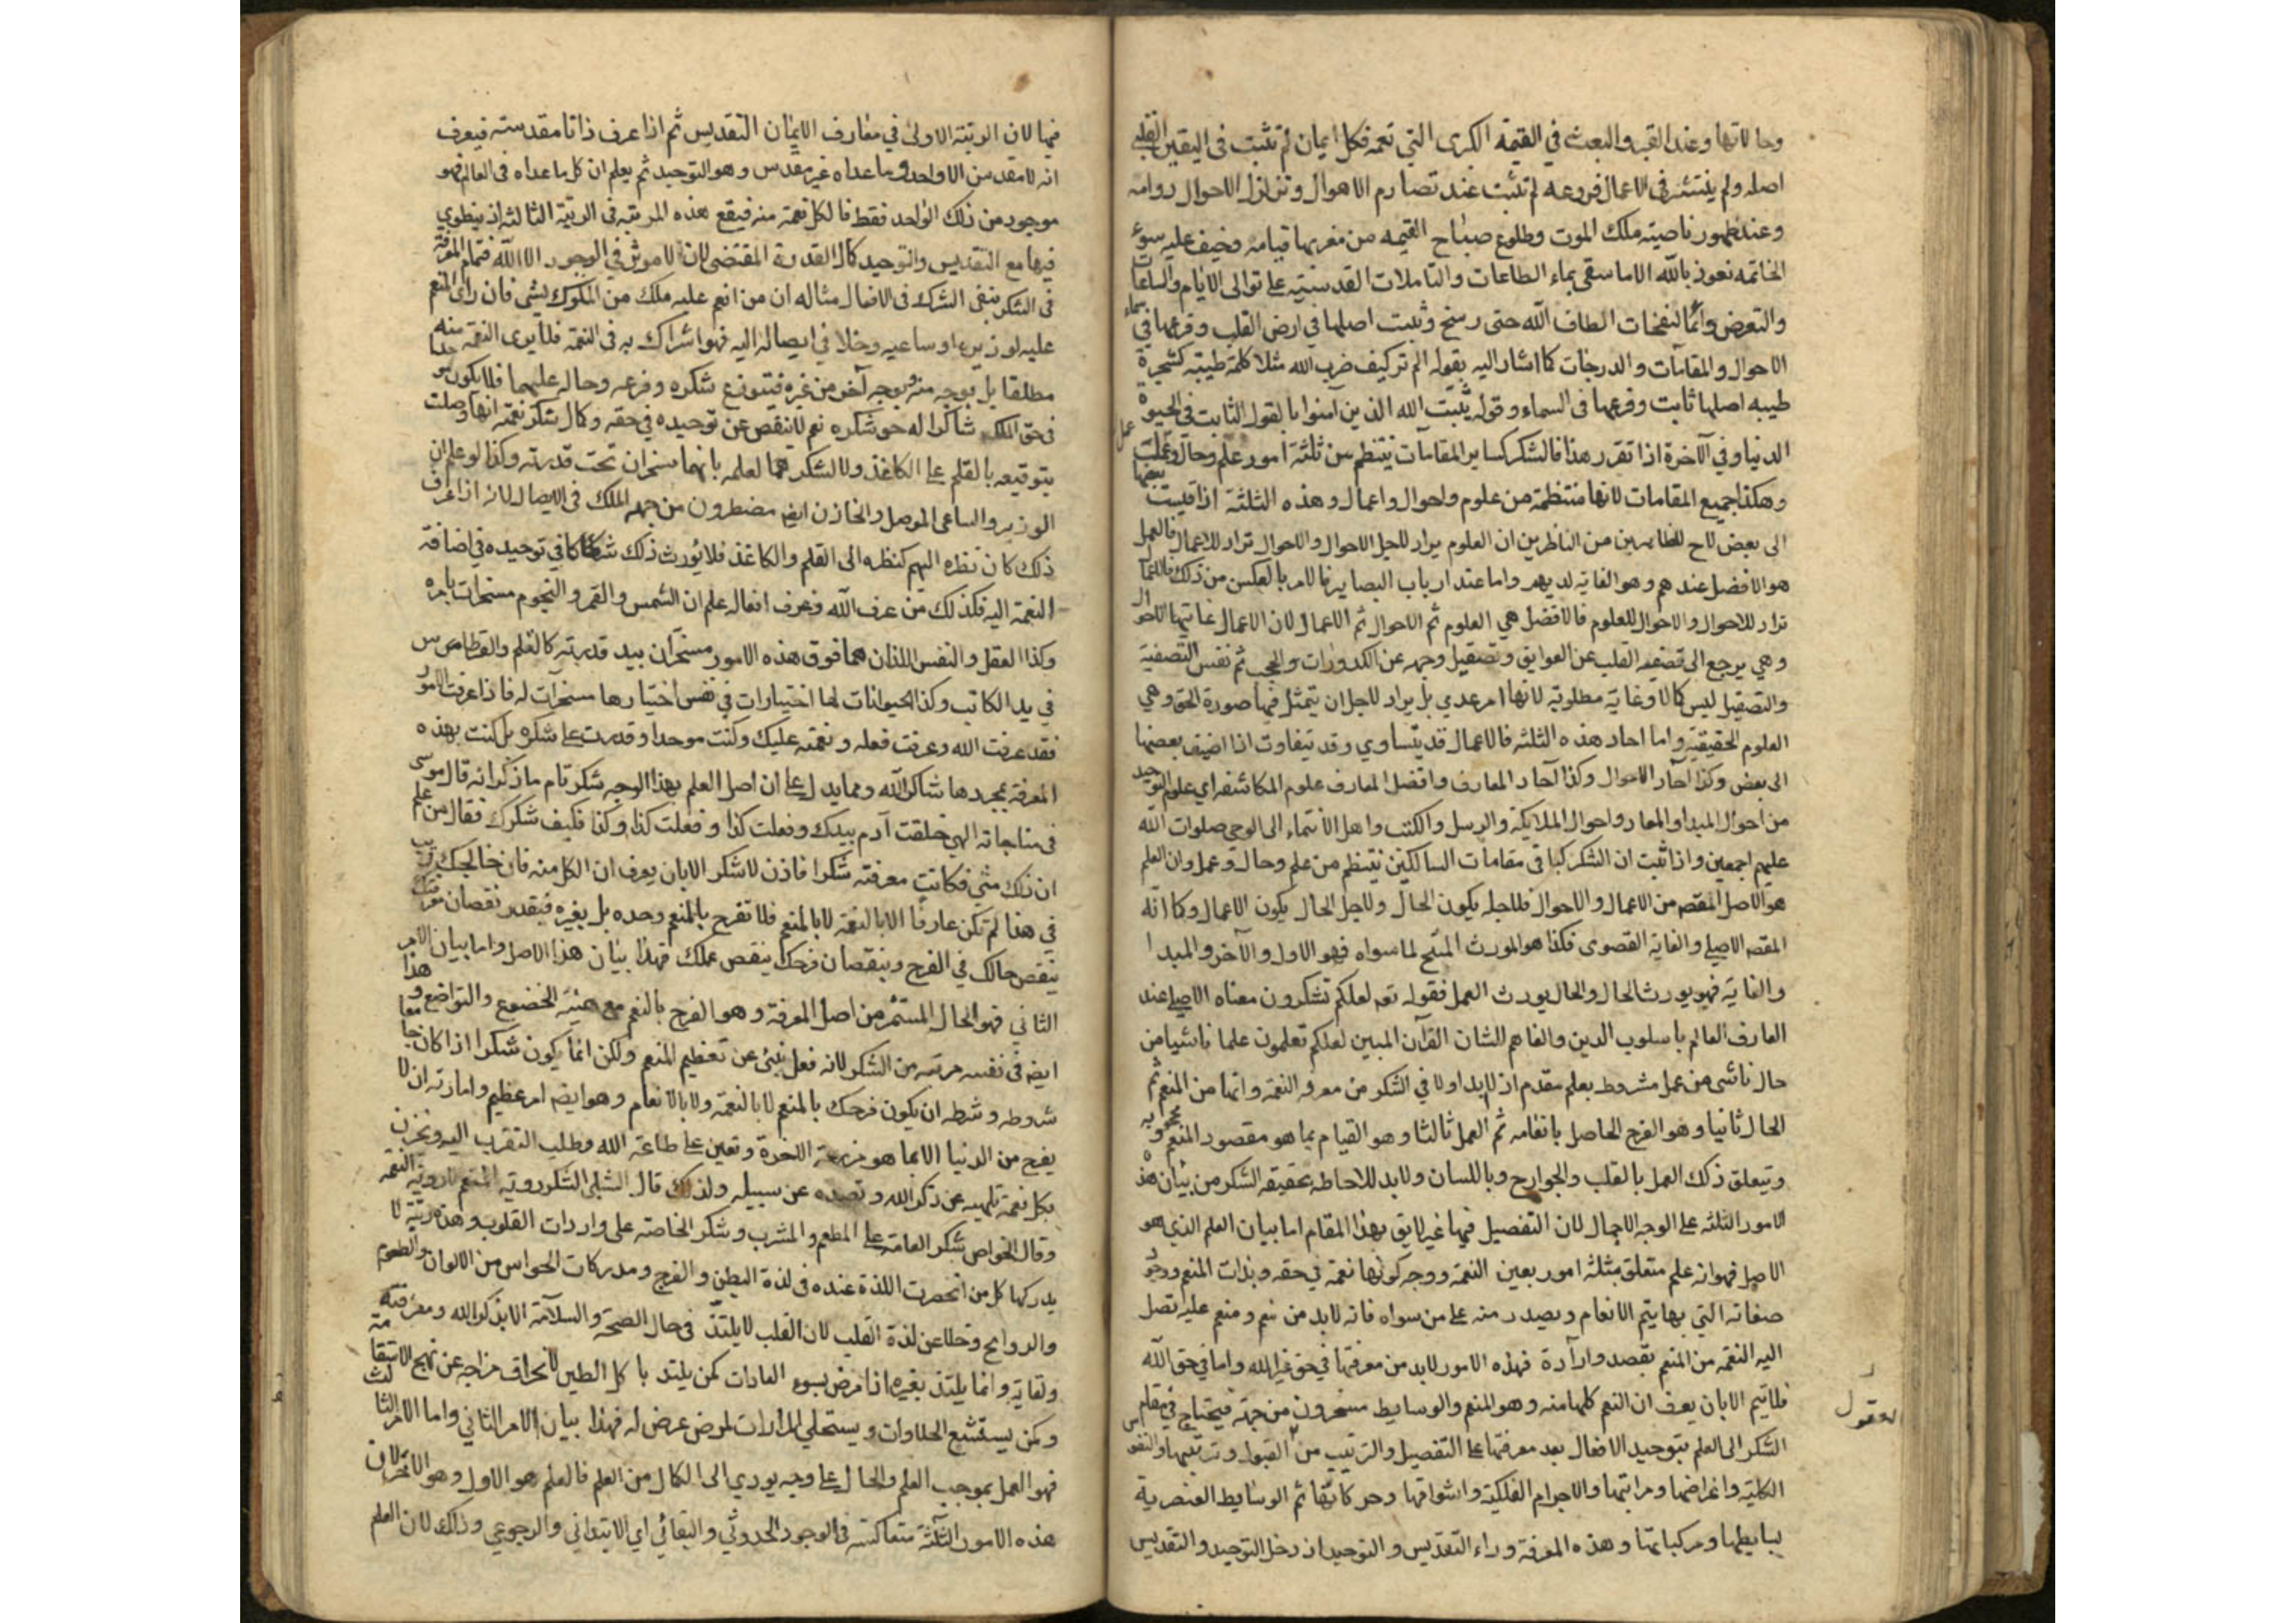 وحالاتها وعند القبر والبعث في القيمة الكبرى التي تعمه فكل ايمان لم تثبت في اليقين القلبي
اصله ولم ينتشر في الاعمال فروعه لم تثبت عند تصادم الاهوال وتزلزل الاحوال دوامه
وعند ظهور ناصيته ملك الموت وطلوع صباح القيمه من مغربها قيامه وخيف عليه سوء
الخاتمه نعوذ بالله الا ما سقى بماء الطاعات والتاملات القدسية على توالى الايام والساعات
والتعرض دائما لنفحات الطاف الله حتى رسخ وثبت اصلها في ارض القلب وفرعها في سماء
الاحوال والمقامات والدرجات كما اشار اليه بقوله الم تر كيف ضرب الله مثلا كلمة طيبة كشجرة
طيبه اصلها ثابت وفرعها في السماء وقوله يثبت الله الذين آمنوا بالقول الثابت في الحيوة
الدنيا وفي الآخرة اذا تقرر هذا فالشكر كساير المقامات ينتظم من ثلثة امور علم وحال وعمل
وهكذا جميع المقامات لانها منتظمة من علوم واحوال واعمال وهذه الثلثة اذا قيست بعضها
الى بعض لاح للظاهرين من الناظرين ان العلوم يراد لاجل الاحوال والاحوال تراد للاعمال فالعمل
هو الافضل عندهم وهو الغاية لديهم واما عند ارباب البصاير فالامر بالعكس من ذلك فالاعمال
تراد للاحوال والاحوال للعلوم فالافضل هي العلوم ثم الاحوال ثم الاعمال لان الاعمال غايتها الاحوال
وهي يرجع الى تصفية القلب عن العوايق وتصقيل وجهه عن الكدورات والحجب ثم نفس التصفية
والتصقيل ليس كمالا وغاية مطلوبة لانها امر عدمي بل يراد لاجل ان يتمثل فيها صورة الحق وهي
العلوم الحقيقية واما احاد هذه الثلثه فالاعمال قد يتساوي وقد يتفاوت اذا اضيف بعضها
الى بعض وكذا احاد الاحوال وكذا آحاد المعارف وافضل المعارف علوم المكاشفه اي علوم التوحيد
من احوال المبدا والمعاد واحوال الملايكة والرسل والكتب واهل الانتماء الى الوحي صلوات الله
عليهم اجمعين واذا ثبت ان الشكر كباقي مقامات السالكين ينتظم من علم وحال وعمل وان العلم
هو الاصل المقصد من الاعمال والاحوال فلاجله يكون الحال ولاجل الحال يكون الاعمال وكما انه
المقصد الاصلي والغاية القصوى فكذا هو المورث المنتج لما سواه فهو الاول والآخر والمبدا
والغاية فهو يورث الحال والحال يورث العمل فقوله تعم لعلكم تشكرون معناه الاصلي عند
العارف العالم باسلوب الدين والفاهم لشان القرآن المبين لعلكم تعلمون علما ناشيا من
حال ناشى من عمل مشروط بعلم مقدم اذ لا بد اولا في الشكر من معرفة النعمة وانها من المنعم ثم
الحال ثانيا وهو الفرح الحاصل بانعامه ثم العمل ثالثا وهو القيام بما هو مقصود المنعم ومحبوبه
ويتعلق ذلك العمل بالقلب والجوارح وباللسان ولا بد للاحاطه بحقيقة الشكر من بيان هذه
الامور الثلثه على الوجه الاجمال لان التفصيل فيها غير لايق بهذا المقام اما بيان العلم الذي هو
الاصل فهو انه علم متعلق بثلثة امور بعين النعمة ووجه كونها نعمة في حقه وبذات المنعم ووجود
صفاته التي بها يتم الانعام ويصدر منه على من سواه فانه لا بد من نعم ومنعم عليه تصل
اليه النعمة من المنعم بقصد وارادة فهذه الامور لا بد من معرفتها في حق غير الله واما في حق الله
فلا يتم الا بان يعرف ان النعم كلها منه وهو المنعم والوسايط مسخرون من جهته فيحتاج في مقام
الشكر الى العلم بتوحيد الافعال بعد معرفتها على التفصيل والترتيب من العقول وترتيبها والنفوس
الكلية واغراضها ومراتبها والاجرام الفلكية واشواقها وحركاتها ثم الوسايط العنصرية
بسايطها ومركباتها وهذه المعرفة وراء التقديس والتوحيد اذ دخل التوحيد والتقديس
العقول
فيها لان الرتبة الاولى في معارف الايمان التقديس ثم اذا عرف ذاتا مقدسة فيعرف
انه لا مقدس الا واحد وما عداه غير مقدس وهو التوحيد ثم يعلم ان كل ما عداه في العالم فهو
موجود من ذلك الواحد فقط فالكل نعمة منه فيقع هذه المرتبة في الرتبة الثالثة اذ ينطوي
فيها مع التقديس والتوحيد كمال القدرة المقتضى لان لا موثر في الوجود الا الله فتمام المعرفة
في الشكر ينفى الشرك في الافعال مثاله ان من انعم عليه ملك من الملوك بشى فان راى المنعم
عليه لوزيره او ساعيه دخلا في ايصاله اليه فهو اشراك به في النعمة فلا يرى النعمة منه
مطلقا بل بوجه منه وبوجه آخر من غيره فيتوزع شكره وفرحه وحاله عليهما فلا يكون موحدا
في حق الملك شاكرا له حق شكره نعم لا ينقص عن توحيده في حقه وكمال شكر نعمة انها وصلت
بتوقيعه بالقلم على الكاغذ ولا لشكرهما لعلمه بانهما مسخران تحت قدرته وكذا لو علم ان
الوزير والساعى الموصل والخازن ايضا مضطرون من جهة الملك في الايصال لانه اذا عرف
ذلك كان نظره اليهم كنظره الى القلم والكاغذ فلا يورث ذلك شكا في توحيده في اضافة
النعمة اليه فكذلك من عرف الله وعرف افعاله علم ان الشمس والقمر والنجوم مسخرات بامره
وكذا العقل والنفس اللذان هما فوق هذه الامور مسخران بيد قدرته كالقلم والقرطاس
في يد الكاتب وكذا الحيوانات لها اختيارات في نفس اختيارها مسخرات له فاذا عرفت الامور
فقد عرفت الله وعرفت فعله ونعمته عليك وكنت موحدا وقدرت على شكره بل كنت بهذه
المعرفة بمجردها شاكرا لله ومما يدل على ان اصل العلم بهذا الوجه شكر تام ما ذكر انه قال موسى
في مناجاته الهي خلقت آدم بيدك وفعلت كذا وفعلت كذا وكذا فكيف شكرك فقال من علم
ان ذلك مني فكانت معرفته شكرا فاذن لا شكر الا بان يعرف ان الكل منه فان خالجك ريب
في هذا لم تكن عارفا الا بالنعمة لا بالمنعم فلا تفرح بالمنعم وحده بل بغيره فبقدر نقصان معرفتك
ينقص حالك في الفرح وبنقصان فرحك ينقص عملك فهذا بيان هذا الاصل واما بيان الامر
الثاني فهو الحال المستثمر من اصل المعرفة وهو الفرح بالنعم مع هيئة الخضوع والتواضع وهذا
ايضا في نفسه مرتبة من الشكر لانه فعل ينبئ عن تعظيم المنعم ولكن انما يكون شكرا اذا كان جامعا
شروطه وشرطه ان يكون فرحك بالمنعم لا بالنعمة ولا بالانعام وهو ايضا امر عظيم وامارته ان لا
يفرح من الدنيا الا بما هو مزرعة الآخرة وتعين على طاعة الله وطلب التقرب اليه ويحزن
بكل نعمة تلهيه عن ذكر الله وتصده عن سبيله ولذلك قال الشبلي الشكر روية المنعم لا روية النعمة
وقال الخواص شكر العامة على المطعم والمشرب وشكر الخاصة على واردات القلوب وهذه رتبة لا
يدركها كل من انحصرت اللذة عنده في لذة البطن والفرج ومدركات الحواس من الالوان والطعوم
والروايح وخلا عن لذة القلب لان القلب لا يلتذ في حال الصحة والسلامة الا بذكر الله ومعرفته
ولقائه وانما يلتذ بغيره اذا مرض بسوء العادات كمن يلتذ باكل الطين لانحراف مزاجه عن نهج الاستقامة
وكمن يستشبع الحلاوات ويستحلي المرارات لمرض عرض له فهذا بيان الامر الثاني واما الامر الثالث
فهو العمل بموجب العلم والحال على وجه يودي الى الكمال من العلم فالعلم هو الاول وهو الآخر لان
هذه الامور الثلثة متعاكسة في الوجود الحدوثي والبقائي اي الابتدائي والرجوعي وذلك لان العلم